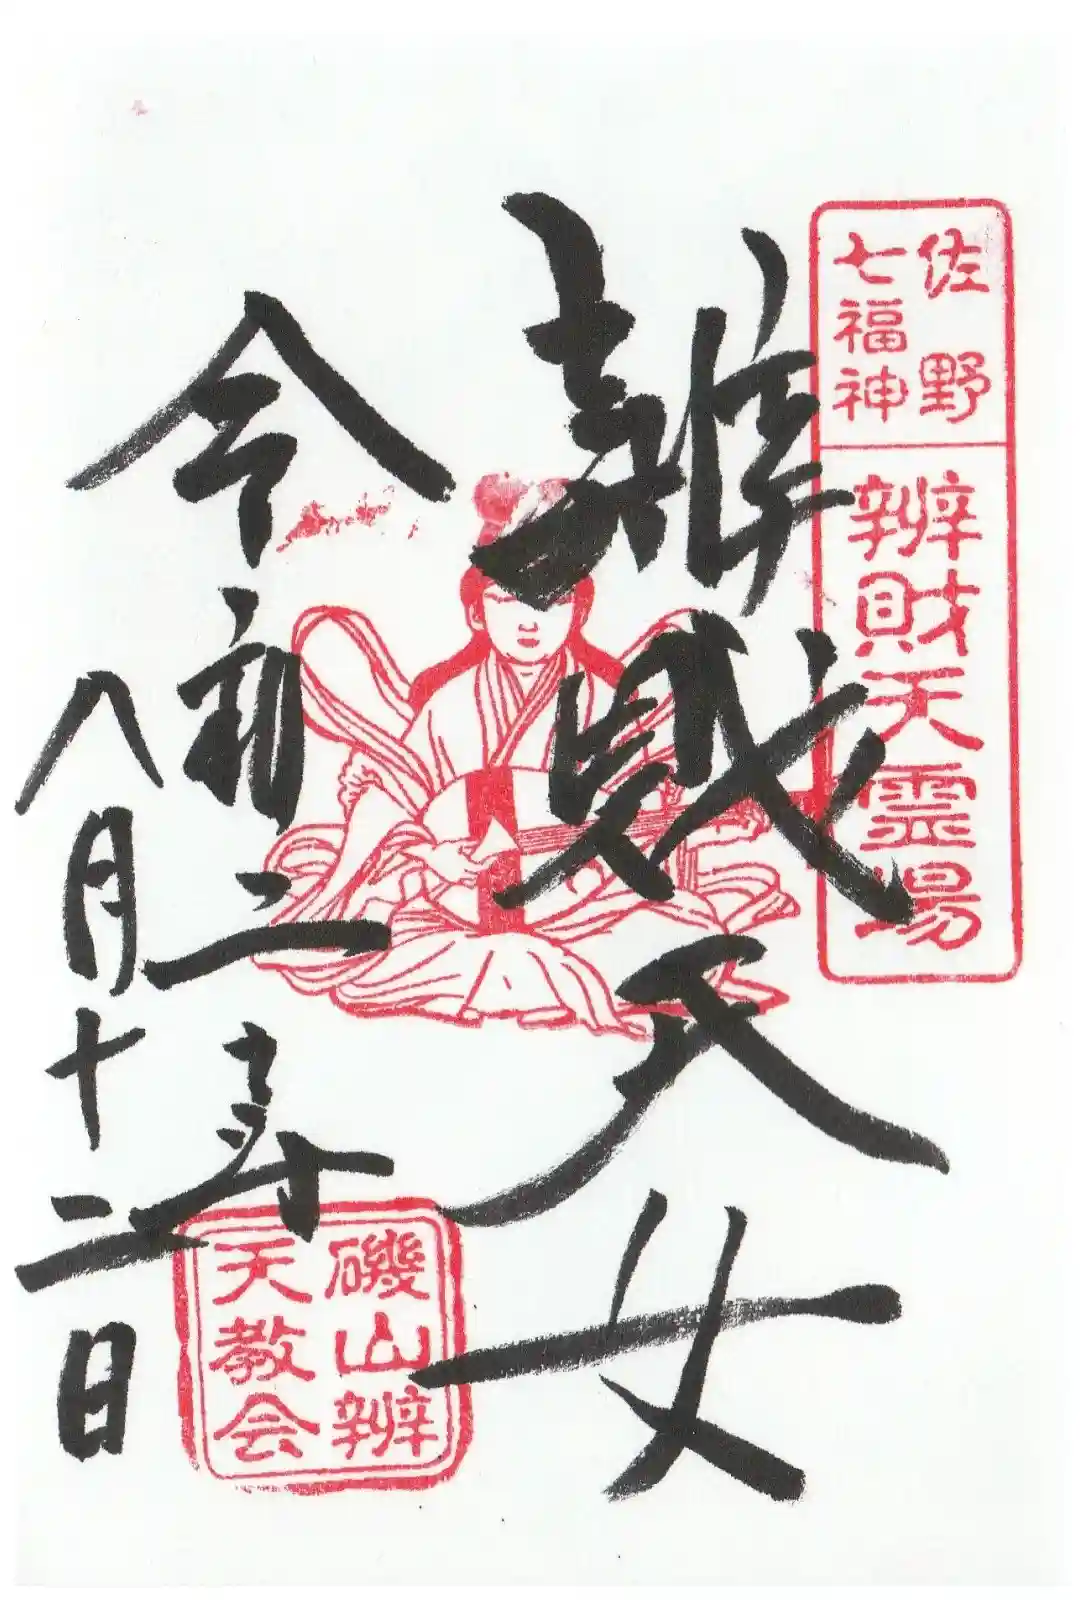 佐野
七福神
辨財天霊場
辨戝天女
令和二年
八月十二日
磯山辨
天教会